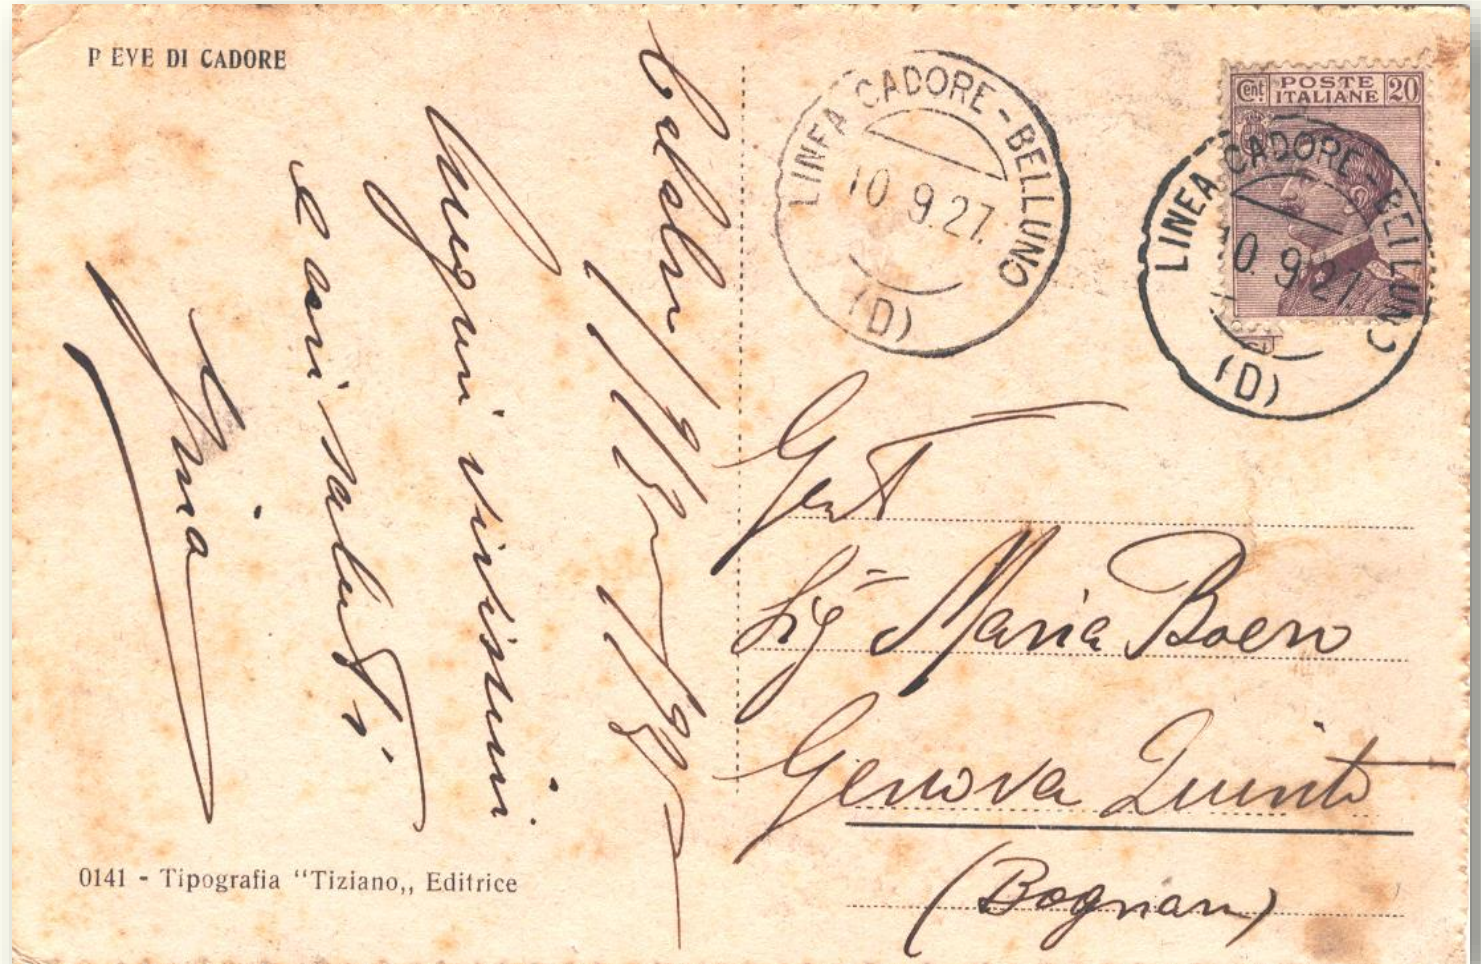 P EVE DI CADORE
Auguri vivissimi
e cari saluti
Gina
0141 - Tipografia "Tiziano,, Editrice
LINEA CADORE - BELLUNO
10.9.27.
(D)
Cent. POSTE ITALIANE 20
LINEA CADORE - BELLUNO
10.9.27.
(D)
Gent
Sig Maria Boero
Genova Quinto